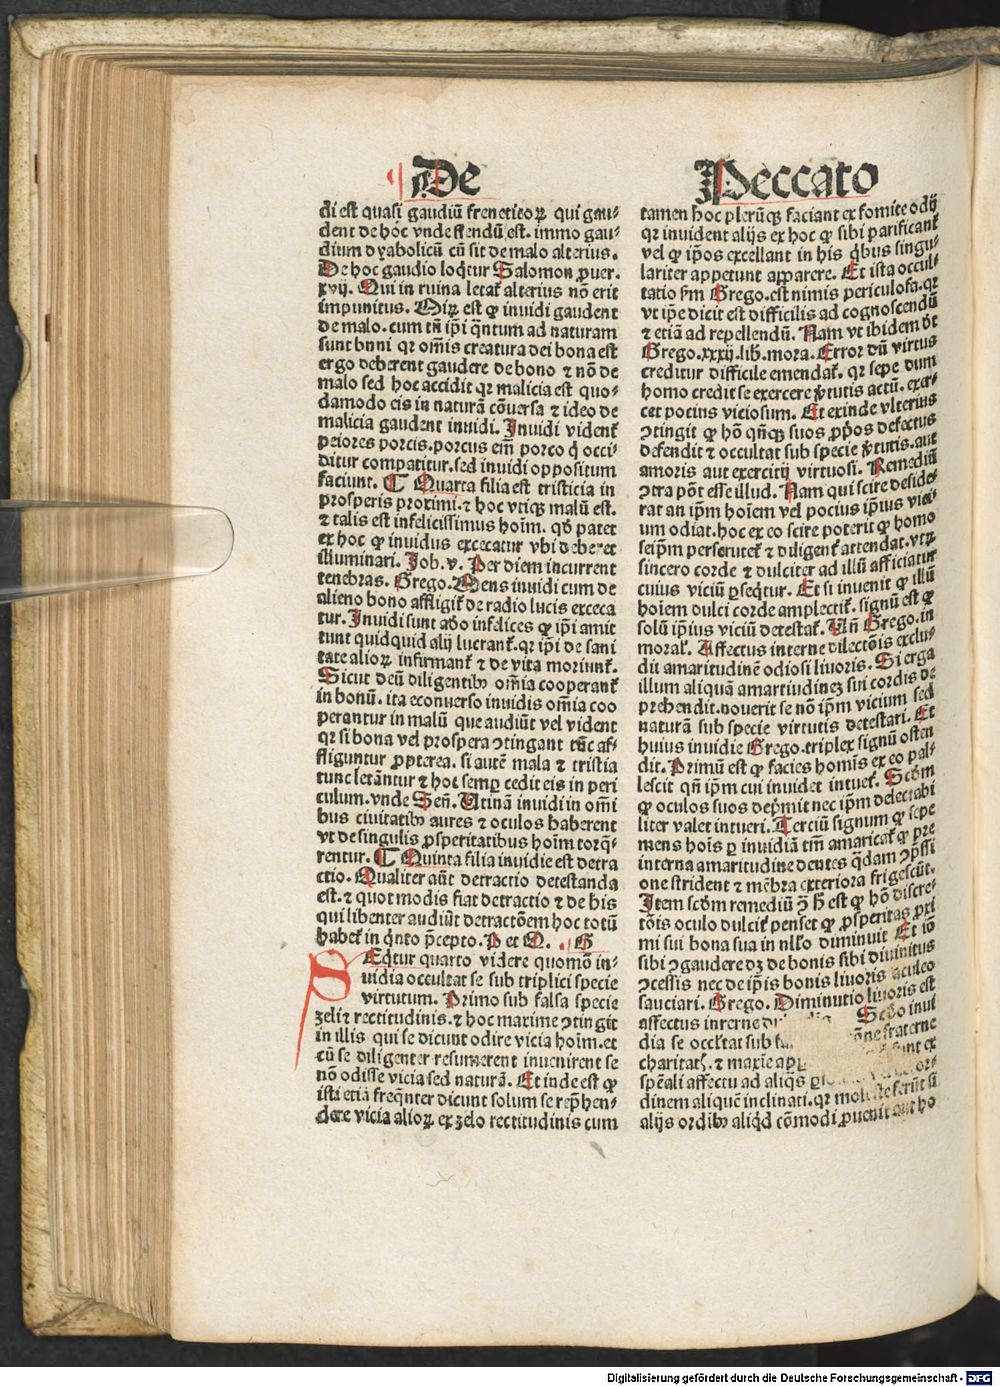 De
Peccato
di est quasi gaudiū freneticoꝝ qui gau⸗
dent de hoc vnde flendū est. immo gau⸗
dium dyabolicū cū sit de malo alterius.
De hoc gaudio loqͥtur Salomon ꝓuer.
xvij. Qui in ruina letat᷑ alterius nō erit
impunitus. Miꝝ est ꝙ inuidi gaudent
de malo. cum tn̄ ip̄i qͣntum ad naturam
sunt boni qꝛ om̄is creatura dei bona est
ergo deberent gaudere de bono ⁊ nō de
malo sed hoc accidit qꝛ malicia est quo⸗
damodo eis in naturā cōuersa ⁊ ideo de
malicia gaudent inuidi. Inuidi vident᷑
peiores porcis. porcus em̄ porco qͥ occi⸗
ditur compatitur. sed inuidi oppositum
faciunt. ¶ Quarta filia est tristicia in
prosperis proximi. ⁊ hoc vtiqꝫ malū est.
⁊ talis est infelicissimus hoīm. qd̕ patet
ex hoc ꝙ inuidus excecatur vbi deberet
illuminari. Job. v. Per diem incurrent
tenebras. Grego. Mens inuidi cum de
alieno bono affligit᷑ de radio lucis exceca
tur. Inuidi sunt adeo infelices ꝙ ip̄i amit
tunt quidquid alij lucrant᷑. qꝛ ip̄i de sani
tate alioꝝ infirmant᷑ ⁊ de vita moriunt᷑.
Sicut deū diligentibꝰ om̄ia cooperant᷑
in bonū. ita econuerso inuidis om̄ia coo
perantur in malū que audiūt vel vident
qꝛ si bona vel prospera ꝯtingant tūc af⸗
fliguntur ꝓpterea. si autē mala ⁊ tristia
tunc letāntur ⁊ hoc semꝑ cedit eis in peri
culum. vnde Sen̄. Utinā inuidi in om̄i
bus ciuitatibꝰ aures ⁊ oculos haberent
vt de singulis ꝓsperitatibus hoīm torq̄⸗
rentur. ¶ Quinta filia inuidie est detra
ctio. Qualiter aūt detractio detestanda
est. ⁊ quot modis fiat detractio ⁊ de his
qui libenter audiūt detractōem hoc totū
habet᷑ in qͥnto p̄cepto. P et Q. G
SEqͥtur quarto videre quomō in⸗
uidia occultat se sub triplici specie
virtutum. Primo sub falsa specie
zeli ⁊ rectitudinis. ⁊ hoc maxime ꝯtingit
in illis qui se dicunt odire vicia hoīm. et
cū se diligenter resumerent inuenirent se
nō odisse vicia sed naturā. Et inde est ꝙ
isti etiā freqͣnter dicunt solum se rep̄hen⸗
dere vicia alioꝝ ex zelo rectitudinis cum
tamen hoc plerūqꝫ faciant ex fomite odij
qꝛ inuident alijs ex hoc ꝙ sibi parificant᷑
vel ꝙ ip̄os excellant in his qͥbus singu⸗
lariter appetunt apparere. Et ista occul⸗
tatio s̄m Grego. est nimis periculosa. qꝛ
vt ip̄e dicit est difficilis ad cognoscendū
⁊ etiā ad repellendū. Nam vt ibidem dt̄
Grego. xxxij. lib. mora. Error dū virtus
creditur difficile emendat᷑. qꝛ sepe dum
homo credit se exercere v̓tutis actū. exer⸗
cet potius viciosum. Et exinde vlterius
ꝯtingit ꝙ hō qn̄qꝫ suos ꝓp̓os defectus
defendit ⁊ occultat sub specie v̓tutis. aut
amoris aut exercitij virtuosi. Remediū
ꝯtra pōt esse illud. Nam qui scire deside⸗
rat an ip̄m hoīem vel pocius ip̄ius vici⸗
um odiat. hoc ex eo scire poterit ꝙ homo
seip̄m perscrutet᷑ ⁊ diligent᷑ attendat. vtꝝ
sincero corde ⁊ dulciter ad illū afficiatur
cuius viciū ꝑseqͥtur. Et si inuenit ꝙ illū
hoīem dulci corde amplectit᷑. signū est ꝙ
solū ip̄ius viciū detestat᷑. Vn̄ Grego. in
moral᷑. Affectus interne dilectōis exclu⸗
dit amaritudinē odiosi liuoris. Si erga
illum aliquā amaritudinē sui cordis de
prehendit. nouerit se nō ip̄m vicium sed
naturā sub specie virtutis detestari. Et
huius inuidie Grego. triplex signū osten
dit. Primū est ꝙ facies homīs ex eo pal⸗
lescit qn̄ ip̄m cui inuidet intuet᷑. Scd̓m
ꝙ oculos suos dep̓mit nec ip̄m delectabi
liter valet intueri. Terciū signum ꝙ sepe
mens hoīs ꝑ inuidiā tm̄ amaricat᷑ ꝙ pre
interna amaritudine dentes qͣdam ꝯp̄ssi
one strident ⁊ mēbra exteriora frigescūt.
Item scd̓m remediū ꝯ̄ h̓ est ꝙ hō discre⸗
tōis oculo dulcit᷑ penset ꝙ ꝓsperitas ꝓxi
mi sui bona sua in nllo diminuit Et iō
sibi ꝯgaudere dꝫ de bonis sibi diuinitus
ꝯcessis nec de ip̄is bonis liuoris aculeo
sauciari. Grego. Diminutio liuoris est
affectus interne Sc̄do inui
dia se occl̓tat sub fraterne
charitat᷑. ⁊ maxīe sunt ex
spēali affectu ad aliqͣs or⸗
dinem aliquē inclinati. qꝛ moleste ferūt si
alijs ordibꝰ aliqͥd cōmodi ꝓuenit aut ho
Digitalisierung gefördert durch die Deutsche Forschungsgemeinschaft - DFG